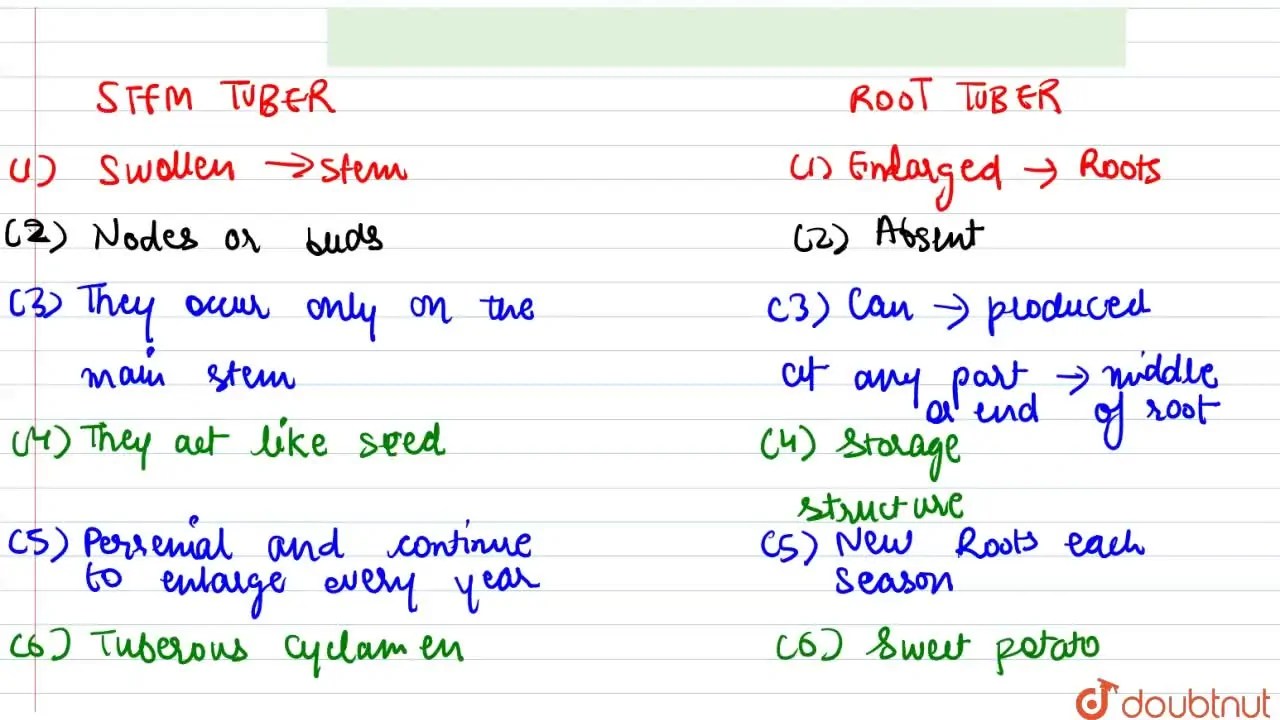 STEM TUBER
ROOT TUBER
(1) Swollen → stem
(1) Enlarged → Roots
(2) Nodes or buds
(2) Absent
(3) They occur only on the
main stem
(3) Can → produced
at any part → middle
or end of root
(4) They act like seed
(4) Storage
structure
(5) Perrenial and continue
to enlarge every year
(5) New Roots each
season
(6) Tuberous Cyclamen
(6) Sweet potato
doubtnut